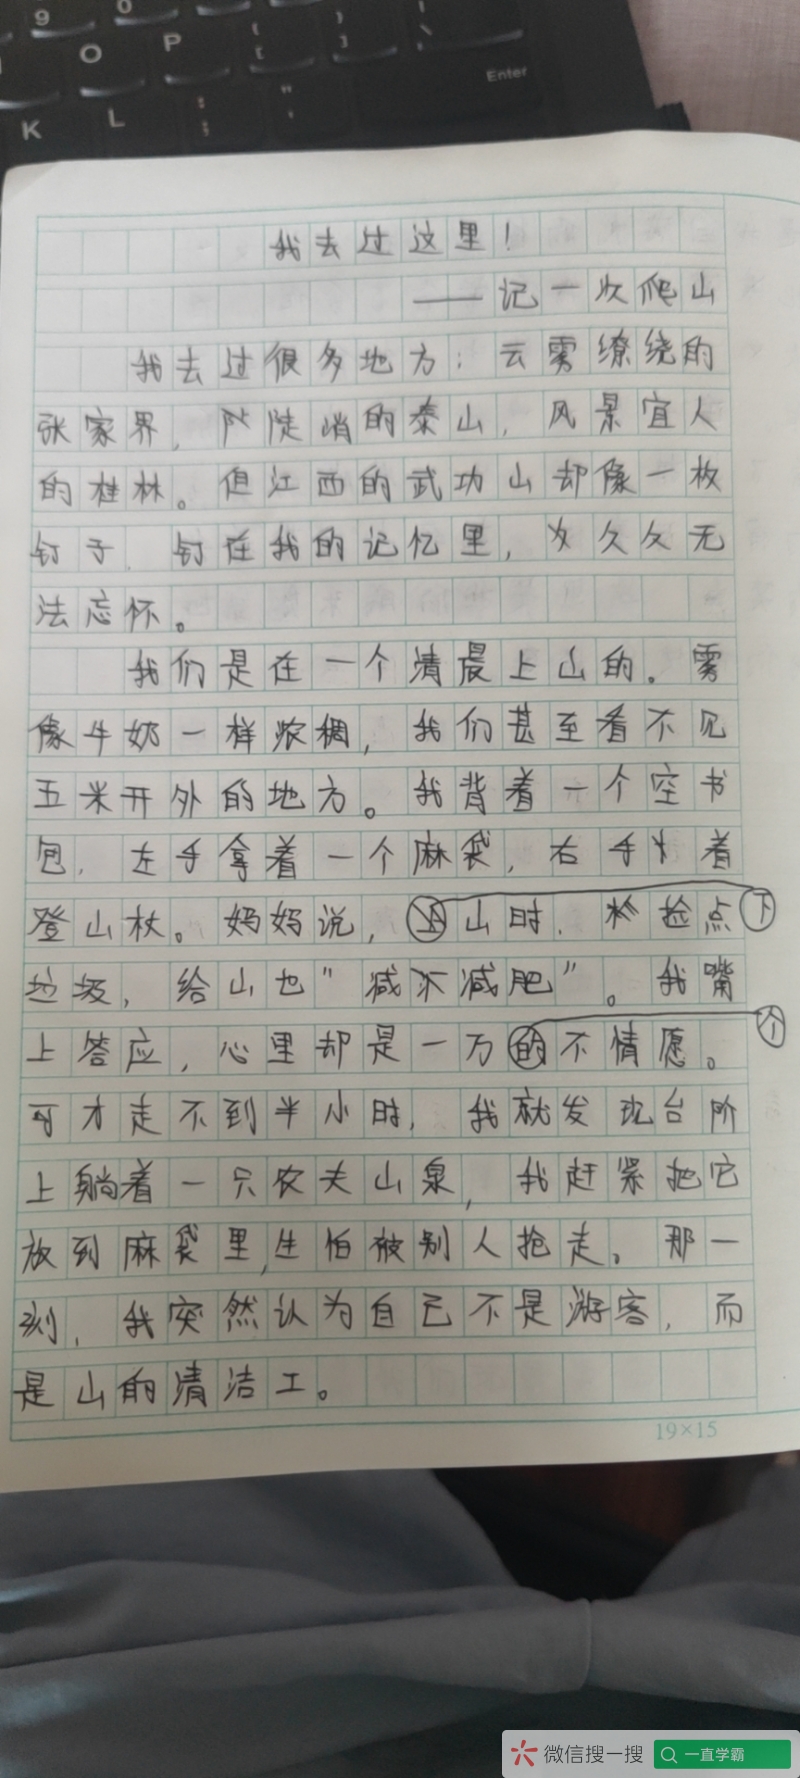 9 0
O P { [ } ] | \
K L : ; " ' Enter
我去过这里！
——记一次爬山
我去过很多地方：云雾缭绕的
张家界，陡峭的泰山，风景宜人
的桂林。但江西的武功山却像一枚
钉子，钉在我的记忆里，久久无
法忘怀。
我们是在一个清晨上山的。雾
像牛奶一样浓稠，我们甚至看不见
五米开外的地方。我背着一个空书
包，左手拿着一个麻袋，右手着
登山杖。妈妈说，下山时，捡点
垃圾，给山也"减减肥"。我嘴
上答应，心里却是一万个不情愿。
可才走不到半小时，我就发现台阶
上躺着一只农夫山泉，我赶紧把它
放到麻袋里，生怕被别人抢走。那一
刻，我突然认为自己不是游客，而
是山的清洁工。
19×15
微信搜一搜 一直学霸